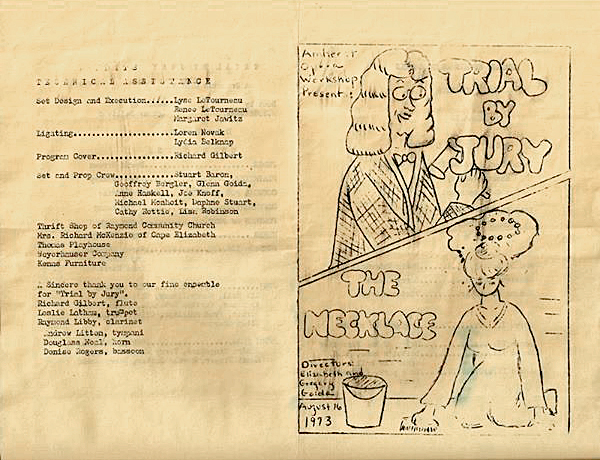 TECHNICAL ASSISTANCE
Set Design and Execution......Lyse LeTourneau
Renee LeTourneau
Margaret Javitz
Lighting......................Loren Novak
Lydia Belknap
Program Cover.................Richard Gilbert
Set and Prop Crew.............Stuart Baron,
Geoffrey Bergler, Glenn Goida,
Anne Haskell, Joe Knoff,
Michael Monhoit, Daphne Stuart,
Cathy Nottie, Lisa Robinson
Thrift Shop of Raymond Community Church
Mrs. Richard McKenzie of Cape Elizabeth
Thomas Playhouse
Weyerhauser Company
Kenas Furniture
A Sincere thank you to our fine ensemble
for "Trial by Jury".
Richard Gilbert, flute
Leslie Latham, trumpet
Raymond Libby, clarinet
Andrew Litton, tympani
Douglass Neal, horn
Denise Rogers, bassoon
Amherst
Opera
Workshop
Presents:
TRIAL
BY
JURY
THE
NECKLACE
Directors:
Elizabeth and
Gregory
Goida
August 16
1973